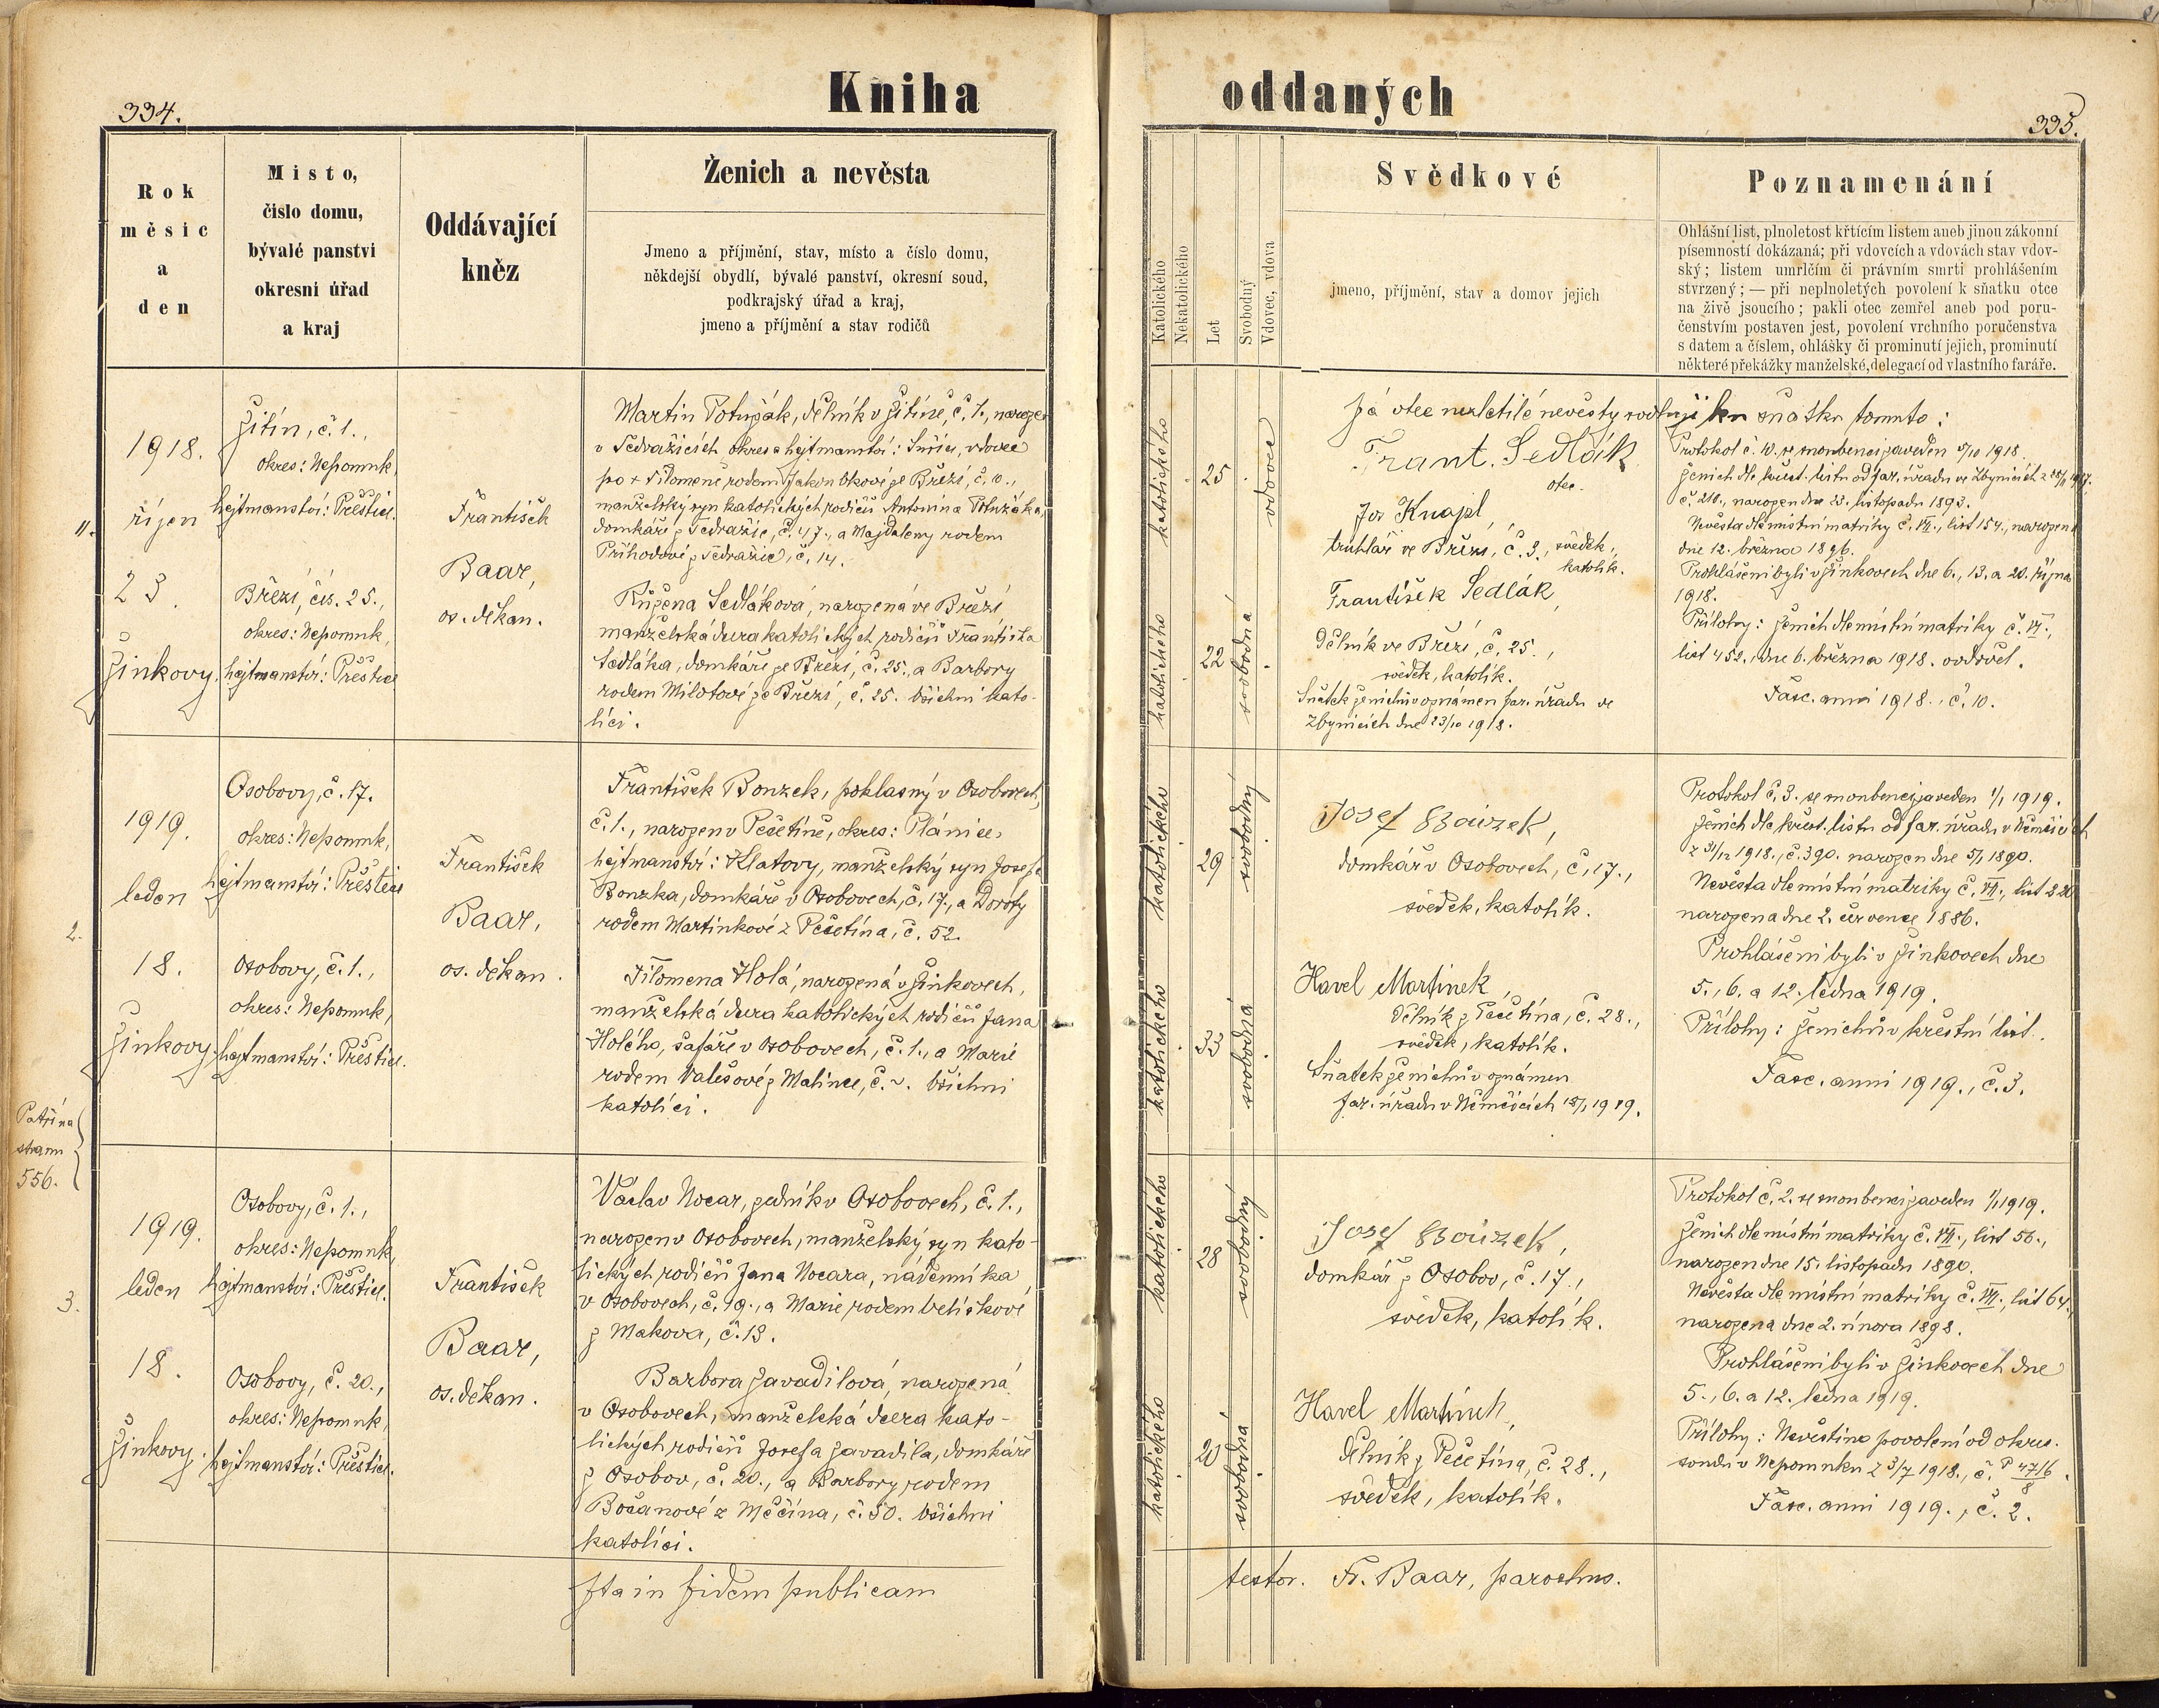 334.
Kniha
Rok
měsíc
a
den
Místo,
číslo domu,
bývalé panství
okresní úřad
a kraj
Oddávající
kněz
Ženich a nevěsta
Jmeno a příjmění, stav, místo a číslo domu,
někdejší obydlí, bývalé panství, okresní soud,
podkrajský úřad a kraj,
jmeno a příjmění a stav rodičů
11.
1918.
říjen
23.
Žinkovy.
Žitín, č. 1.,
okres: Nepomuk,
hejtmanství: Přeštice.
Březí, čís. 25.,
okres: Nepomuk,
hejtmanství: Přeštice
František
Baar,
os. děkan.
Martin Potužák, dělník v Žitíně, č. 1., narozen
v Tedražicích okres a hejtmanství: Sušice, vdovec
po + Filomeně rodem ze Březí, č. 10.,
manželský syn katolických rodičů Antonína Potužáka,
domkáře z Tedražic, č. 47., a Majdaleny rodem
Příhodové z Tedražic, č. 14.
Růžena Sedláková, narozená ve Březí
manželská dcera katolických rodičů Františka
Sedláka, domkáře ze Březí, č. 25., a Barbory
rodem Milotové ze Březí, č. 25. Všichni kato-
líci.
2.
1919.
leden
18.
Žinkovy.
Osobovy, č. 17.
okres: Nepomuk,
hejtmanství: Přeštice
Osobovy, č. 1.,
okres: Nepomuk,
hejtmanství: Přeštice.
František
Baar,
os. děkan.
František Bouzek, poklasný v Osobovech,
č. 1., narozen v Pečetíně, okres: Plánice,
hejtmanství: Klatovy, manželský syn Josefa
Bouzka, domkáře v Osobovech, č. 17., a Doroty
rodem Martinkové z Pečetína, č. 52.
Filomena Holá, narozená v Žinkovech,
manželská dcera katolických rodičů Jana
Holého, šafáře v Osobovech, č. 1., a Marie
rodem Valešové z Malince, č. ~. Všichni
katolíci.
Patří na
stranu
556.
3.
1919.
leden
18.
Žinkovy.
Osobovy, č. 1.,
okres: Nepomuk,
hejtmanství: Přeštice.
Osobovy, č. 20.,
okres: Nepomuk,
hejtmanství: Přeštice.
František
Baar,
os. děkan.
Václav Nocar, zedník v Osobovech, č. 1.,
narozen v Osobovech, manželský syn kato-
lických rodičů Jana Nocara, nádenníka
v Osobovech, č. 19., a Marie rodem Velíškové
z Makova, č. 13.
Barbora Zavadilová, narozená
v Osobovech, manželská dcera kato-
lických rodičů Josefa Zavadila, domkáře
z Osobov, č. 20., a Barbory rodem
Bočanové z Měčína, č. 50. Všichni
katolíci.
Ita in fidem publicam
oddaných
335.
Katolického
Nekatolického
Let
Svobodný
Vdovec, vdova
Svědkové
jmeno, příjmění, stav a domov jejich
Poznamenání
Ohlášní list, plnoletost křtícím listem aneb jinou zákonní
písemností dokázaná; při vdovcích a vdovách stav vdov-
ský; listem umrlčím či právním smrti prohlášením
stvrzený; — při neplnoletých povolení k sňatku otce
na živě jsoucího; pakli otec zemřel aneb pod poru-
čenstvím postaven jest, povolení vrchního poručenstva
s datem a číslem, ohlášky či prominutí jejich, prominutí
některé překážky manželské, delegací od vlastního faráře.
katolického
25
vdovec
katolického
22
svobodná
Já otec nezletilé nevěsty svoluji ku sňatku tomuto:
Frant. Sedlák
otec.
Jos Knajpl,
truhlář ve Březí, č. 3., svědek,
katolík.
František Sedlák,
dělník ve Březí, č. 25.,
svědek, katolík.
Sňatek ženichův oznámen far. úřadu ve
Zbynicích dne 23/10 1918.
Protokol č. 10. se snoubenci zaveden 5/10 1918.
Ženich dle křest. listu od far. úřadu ve Zbynicích z
č. 210., narozen dne 23. listopadu 1893.
Nevěsta dle místní matriky č. VII., list 154., narozena
dne 12. března 1896.
Prohlášeni byli v Žinkovech dne 6., 13. a 20. října
1918.
Přílohy: ženich dle místní matriky č. VI.,
list 452., dne 6. března 1918. ovdověl.
Fasc. anni 1918., č. 10.
katolického
29
svobodný
katolického
33
svobodná
Josef Bouzek,
domkář v Osobovech, č. 17.,
svědek, katolík.
Havel Martínek,
dělník z Pečetína, č. 28.,
svědek, katolík.
Sňatek ženichův oznámen
far. úřadu v Němčicích 18/1 1919.
Protokol č. 3. se snoubenci zaveden 1/1 1919.
Ženich dle křest. listu od far. úřadu v Němčicích
z 31/12 1918., č. 390. narozen dne 5/1 1890.
Nevěsta dle místní matriky č. VI., list 220
narozena dne 2. července 1886.
Prohlášeni byli v Žinkovech dne
5., 6. a 12. ledna 1919.
Přílohy: ženichův křestní list.
Fasc. anni 1919., č. 3.
katolického
28
svobodný
katolického
20
svobodná
Josef Bouzek,
domkář z Osobov, č. 17.,
svědek, katolík.
Havel Martínek,
dělník z Pečetína, č. 28.,
svědek, katolík.
Protokol č. 2. se snoubenci zaveden 1/1 1919.
Ženich dle místní matriky č. VII., list 56.,
narozen dne 15. listopadu 1890.
Nevěsta dle místní matriky č. VII., list 64.,
narozena dne 2. února 1898.
Prohlášeni byli v Žinkovech dne
5., 6. a 12. ledna 1919.
Přílohy: Nevěstino povolení od okres.
soudu v Nepomuku z 3/7 1918., č. P 47/6 8.
Fasc. anni 1919., č. 2.
testor. Fr. Baar, parochus.